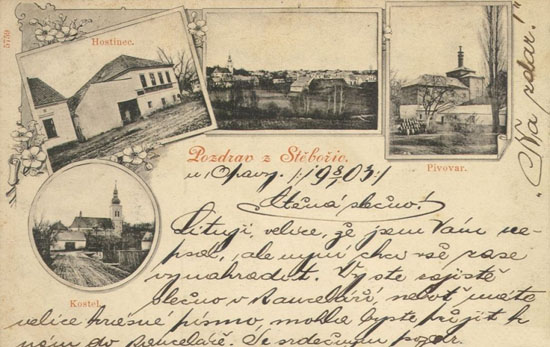 5759
Hostinec.
Pivovar.
Kostel.
„Na zdar!"
Pozdrav z Stěbořic.
u Opavy 19 8/1 03.
Ctěná slečno!
Lituji, velice, že jsem Vám ne-
psal, ale nyní chci vše zase
vynahradit. Vy ste zajistě
slečno v kanceláři, neboť máte
velice krásné písmo, mohla byste přijít k
nám do kanceláře. Se srdečným pozdr.